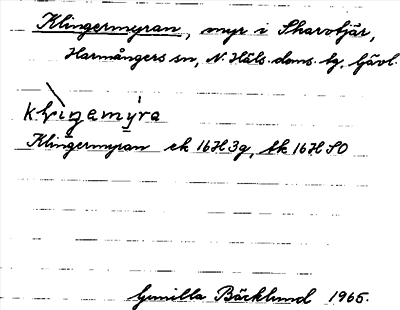 Klingermyran, myr i Skarvtjär,
Harmångers sn, N. Häls. doms. tg, Gävl.
klingemýra
Klingermyran ek 16H3g, tk 16H SO
Gunilla Bäcklund 1965.